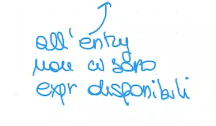 all'entry
non ci sono
expr disponibili